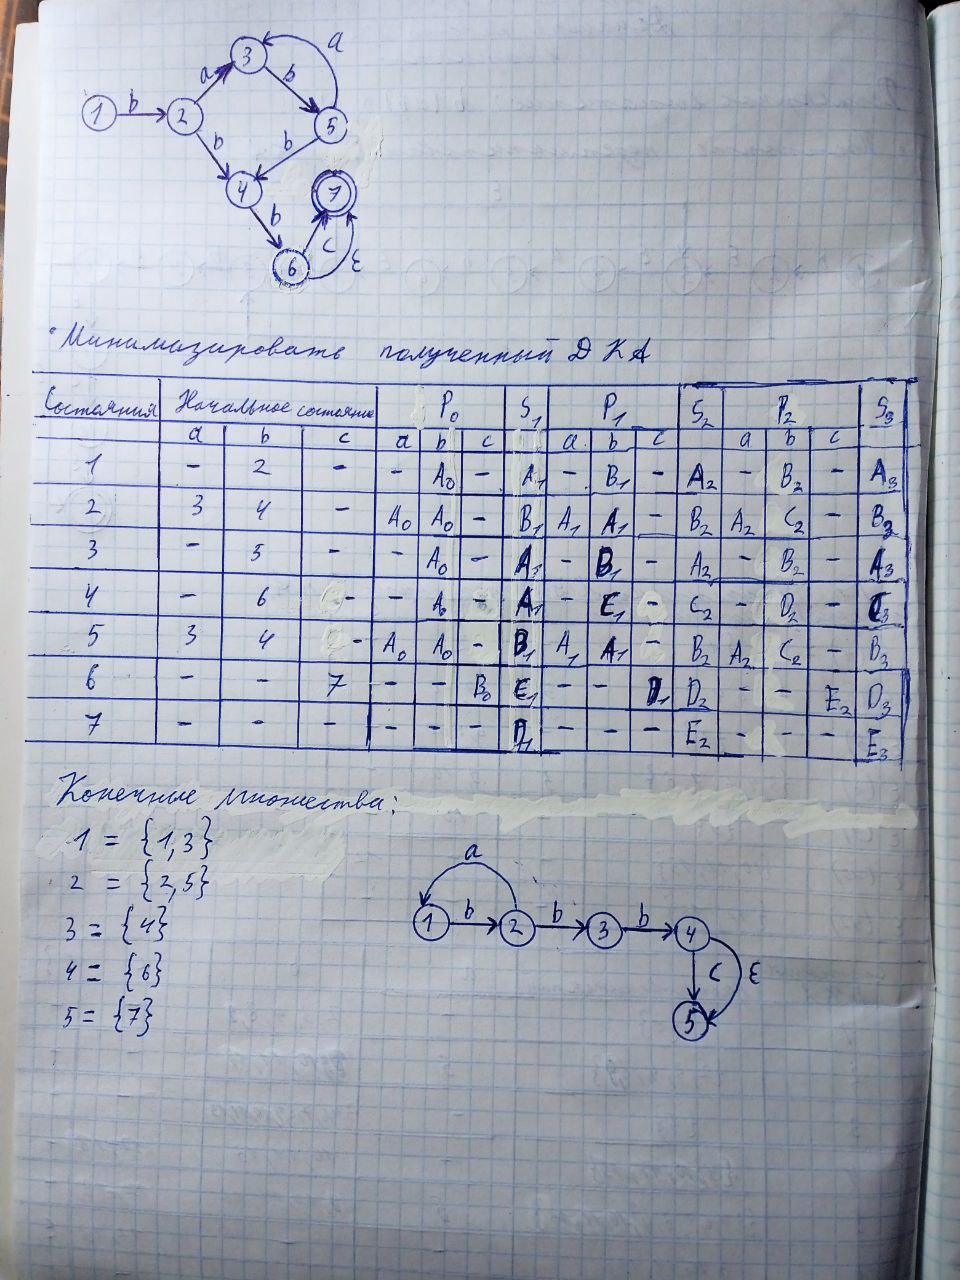 a
3
a b
b
1 2 5
b b
4 7
b c ε
6
• Минимизировать полученный ДКА
Состояния Начальное состояние P₀ S₁ P₁ S₂ P₂ S₃
a b c a b c a b c a b c
1 - 2 - - A₀ - A₁ - B₁ - A₂ - B₂ - A₃
2 3 4 - A₀ A₀ - B₁ A₁ A₁ - B₂ A₂ C₂ - B₃
3 - 5 - - A₀ - A₁ - B₁ - A₂ - B₂ - A₃
4 - 6 - - A₀ - A₁ - C₁ - C₂ - D₂ - C₃
5 3 4 - A₀ A₀ - B₁ A₁ A₁ - B₂ A₂ C₂ - B₃
6 - - 7 - - B₀ C₁ - - D₁ D₂ - - E₂ D₃
7 - - - - - - D₁ - - - E₂ - - - E₃
Конечные множества:
1 = {1,3}
2 = {2,5}
3 = {4}
4 = {6}
5 = {7}
a
1 b 2 b 3 b 4
c ε
5